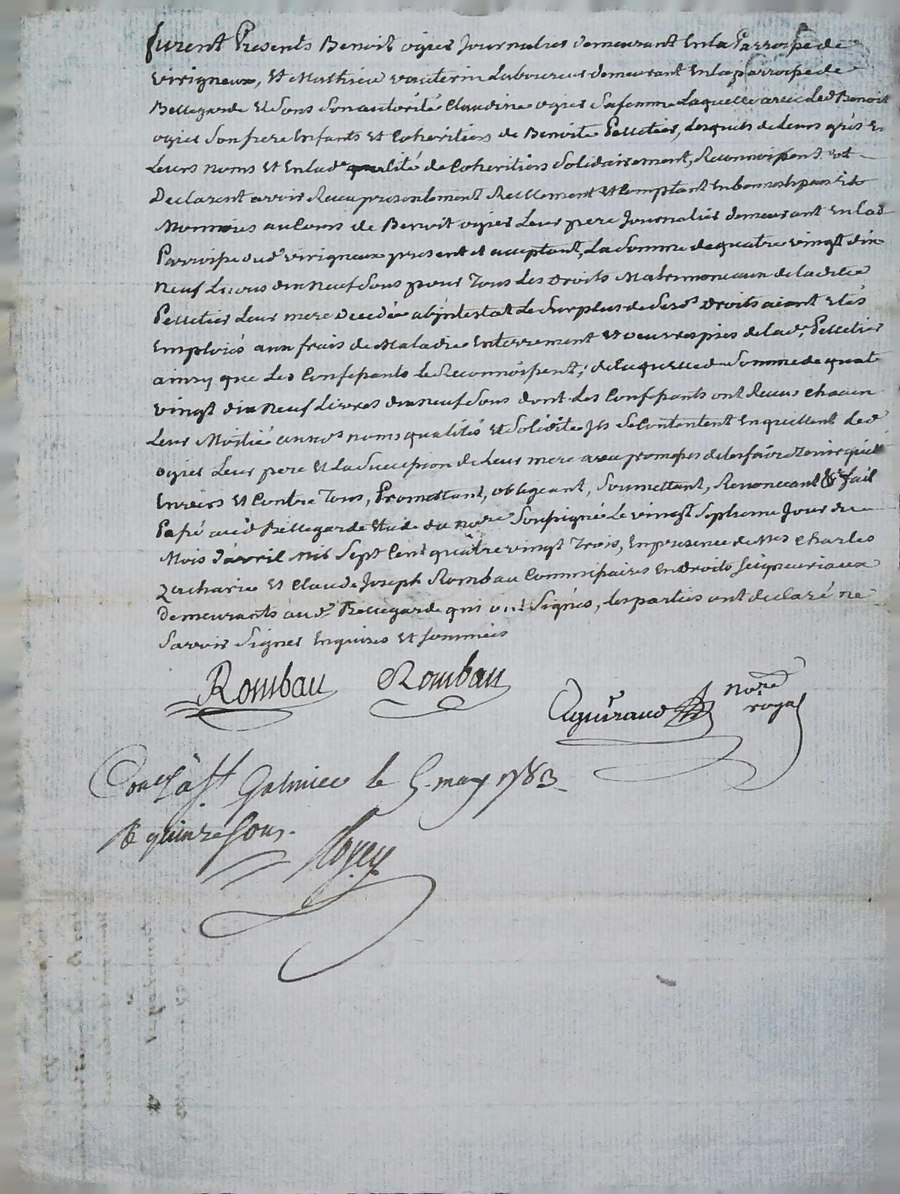 furent Presents Benoit ogier Journalier demeurant En la Parroisse de
virigneux, Et Mathieu vauterin Laboureur demeurant En la parroisse de
Bellegarde Et Sous Son autorité Claudine ogier Sa femme Laquelle avec led Benoit
ogier Son frere Enfants Et Cohéritiers de Benoite Pelletier, Lesquels de Leurs grés En
Leurs noms Et En lad qualité de Cohéritiers Solidairement, Reconnoissent Et
Declarent avoir Recu présentement Réellement Et Comptant En bonnes Espèces Et de
Monnoies au Cours de Benoit ogier Leur pere Journalier demeurant En lad
Parroisse dud virigneux present Et acceptant, La Somme de quatre vingt dix
neuf Livres dix neuf Sous pour Tous Les Droits Matrimoniaux de ladite
Pelletier Leur mere Decedée abintestat Le Surplus de Sesd Droits aiant Etés
Emploiés aux frais de Maladie Enterrement Et oeuvres pies de lad Pelletier
ainsy que Les Confessants Le Reconnoissent; de Laquelle Somme de quatre
vingt dix Neuf Livres dix neuf Sous dont Les Confessants ont Recus chacun
Leur Moitié auxd noms qualités Et Solidité Ils Se Contentent En quittent led
ogier Leur pere Et La Succession de Leur mere avec promesse de les faire Tenir quitte
Envers Et Contre Tous, Promettant, obligeant, Soumettant, Renoncant & fait
Passé aud Bellegarde Etude du nore Soussigné Le vingt Septieme Jour du
Mois d'avril Mil Sept Cent quatre vingt Trois, En presence de Mes Charles
Zacharie Et Claude Joseph Rombau Commissaires En Droits Seigneuriaux
demeurants aud Bellegarde qui ont Signés, Les parties ont declaré ne
Savoir Signer Enquises Et Sommées
Rombau Rombau
nore
royal
à St Galmier le 5. may 1783.
R quinze sous.